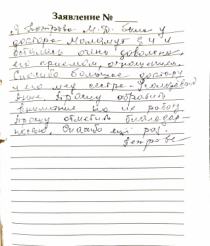 Заявление №
Я Ветрова М.Д. была у
доктора Моламут в 4 и
осталась очень довольна
его приемом, отношением.
Спасибо большое доктору
и его мед сестре
Прошу обратить
внимание на их работу
Прошу отметить благодар-
ностью. Спасибо ещё раз.
Ветрова